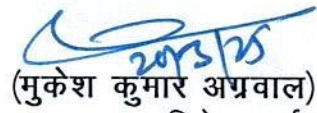 20/3/25
(मुकेश कुमार अग्रवाल)